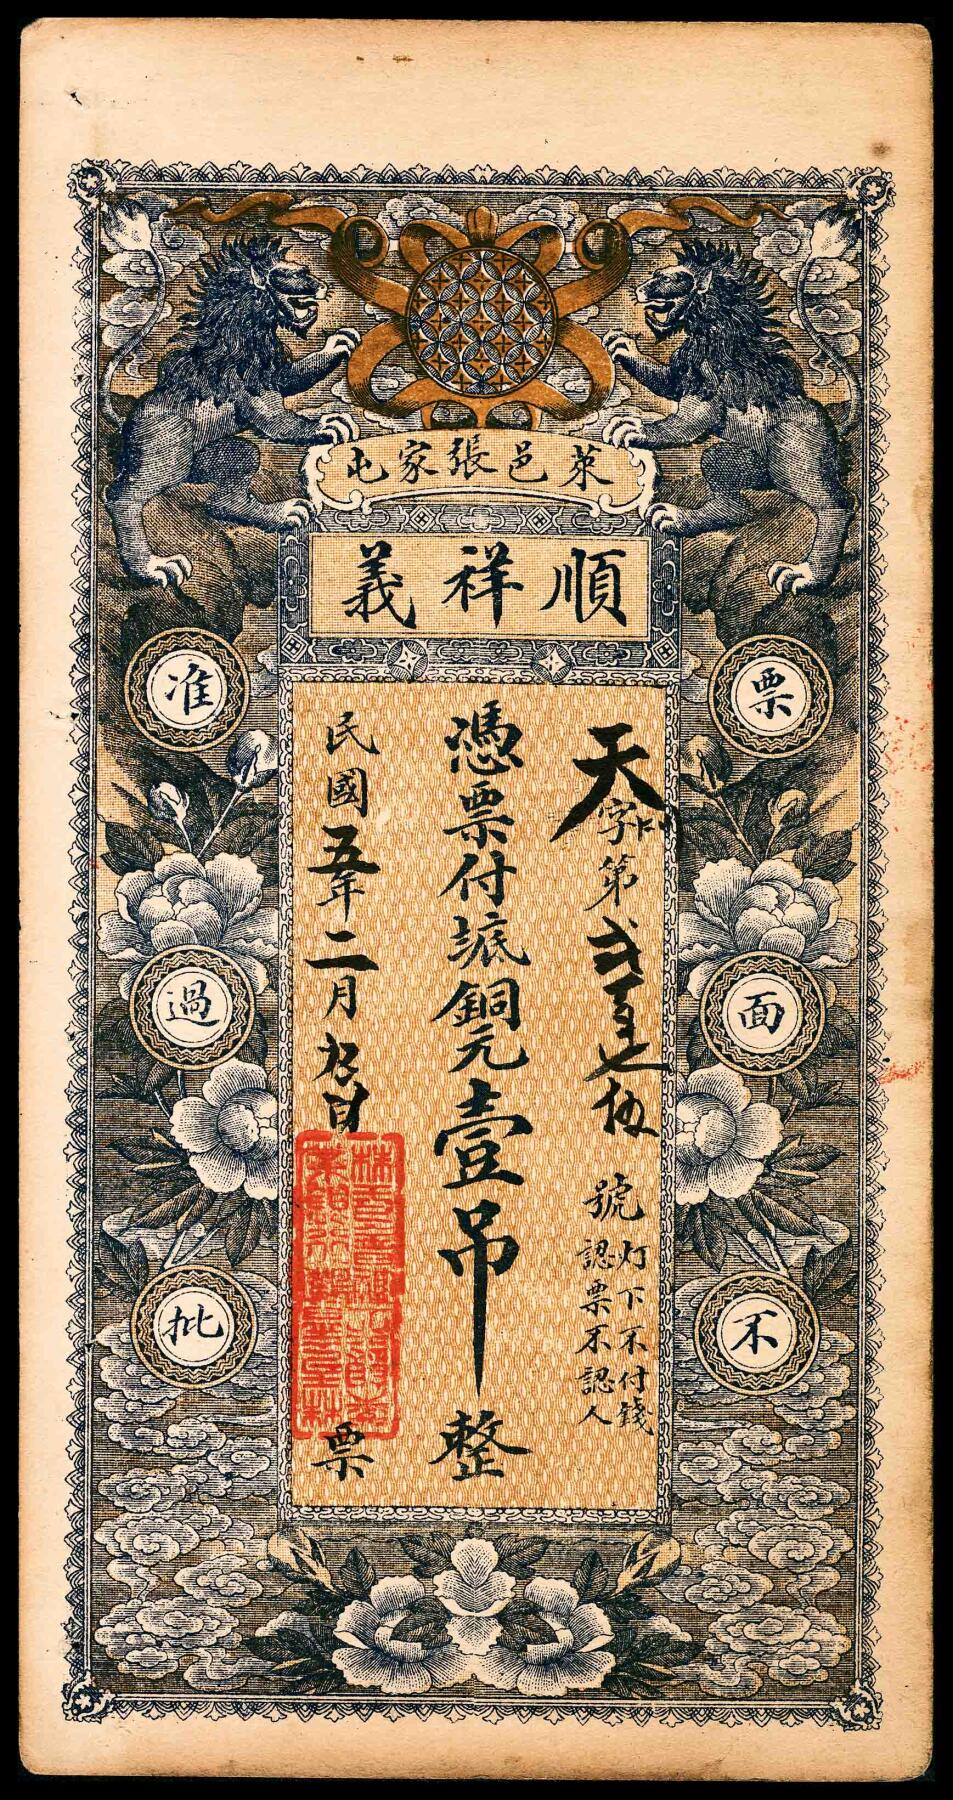 萊邑張家屯
順祥義
天字第弍百七伍號
灯下不付錢
認票不認人
憑票付㡳銅元壹吊整
民國五年二月
日
票
票面不
准過批